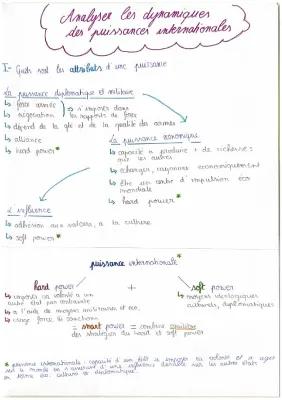 Analyser les dynamiques
des puissances internationales
I- Quels sont les attributs d'une puissance
La puissance diplomatique et militaire
↳ force armée
↳ négociation
⇒ s'imposer dans
les rapports de force
↳ dépend de la qté et de la qualité des armes
↳ alliance
↳ hard power*
La puissance économique
↳ capacité à produire + de richesses
que les autres
↳ échanger, rayonner économiquement
↳ être un centre d'impulsion éco
mondiale
↳ hard power*
L'influence
↳ adhésion aux valeurs, à la culture
↳ soft power*
puissance internationale*
hard power + soft power
↳ imposer sa volonté à un
autre état par contrainte
↳ à l'aide de moyens militaires et éco.
↳ usage force & sanctions
↳ moyens idéologiques
culturels, diplomatiques
= smart power = combine
des stratégies du hard et soft power
* puissance internationale : capacité d'un état à imposer sa volonté et à agir
sur le monde en exerçant une influence sur les autres états